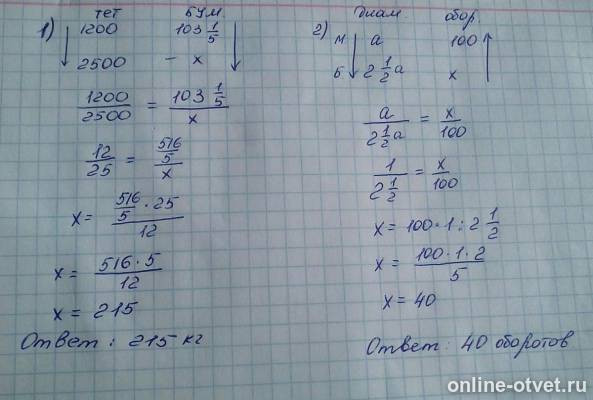 1) тет бум
1200 103 1/5
2500 — x
1200/2500 = 103 1/5 / x
12/25 = 516/5 / x
x = 516/5 · 25 / 12
x = 516 · 5 / 12
x = 215
Ответ: 215 кг
2) диам. обор.
м a 100
б 2 1/2 a x
a / 2 1/2 a = x/100
1 / 2 1/2 = x/100
x = 100 · 1 : 2 1/2
x = 100 · 1 · 2 / 5
x = 40
Ответ: 40 оборотов
online-otvet.ru